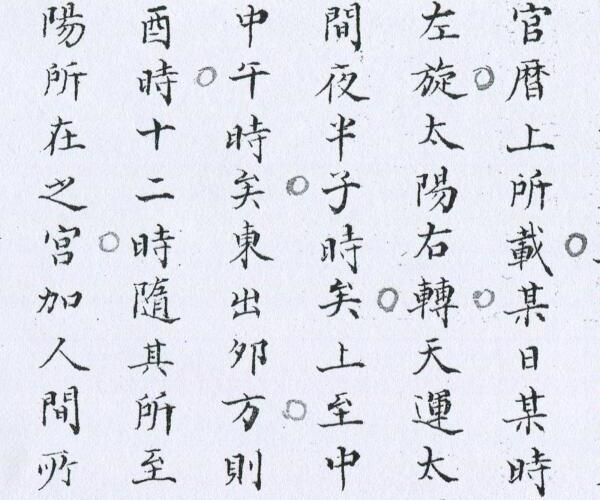 官曆上所載某日某時
左旋太陽右轉天運太
間夜半子時矣上至中
中午時矣東出夘方則
酉時十二時隨其所至
陽所在之宮加人間所